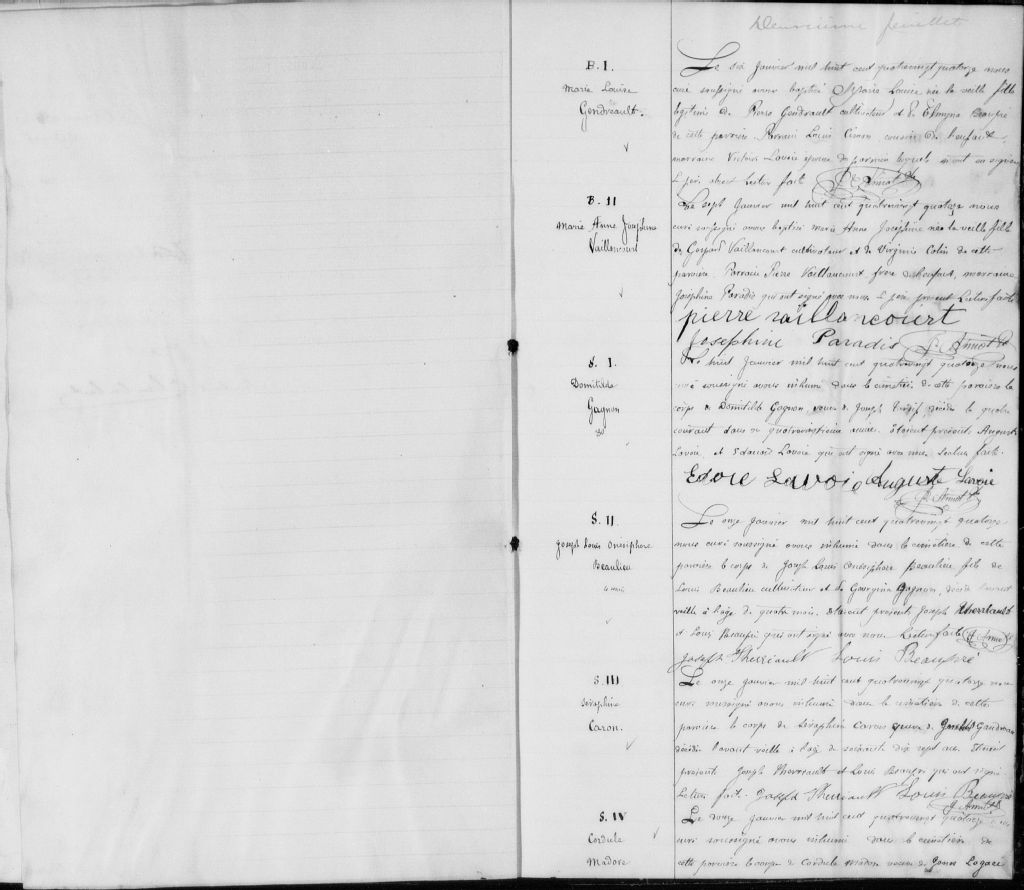 Deuxieme feuillet
B. I.
Marie Louise
Gendreault.
Le six Janvier mil huit cent quatrevingt quatorze nous
curé soussigné avons baptisé Marie Louise née la veille fille
légitime de Pierre Gendreault cultivateur et de Elmyna Beaupré
de cette paroisse. Parrain Louis cousin de l'enfant,
marraine Lavoie épouse du parrain lesquels n'ont su signer
Le père absent Lecture faite
B. II
Marie Anne Josephine
Vaillancourt
Le sept Janvier mil huit cent quatrevingt quatorze nous
curé soussigné avons baptisé Marie Anne Joséphine née la veille fille
de Gaspard Vaillancourt cultivateur et de Virginie Colin de cette
paroisse. Parrain Pierre Vaillancourt frère de l'enfant, marraine
Joséphine Paradis qui ont signé avec nous. Le père present Lecture faite
pierre vaillancourt
Josephine Paradis
S. I.
Domitilde
Gagnon
Le huit Janvier mil huit cent quatrevingt quatorze nous
curé soussigné avons inhumé dans le cimetière de cette paroisse le
corps de Domitilde Gagnon veuve de Joseph décédée le quatre
courant dans sa année. Etaient présents Auguste
Lavoie, et Edouard Lavoie qui ont signé avec nous Lecture faite.
Edoue Lavoie Auguste Lavoie
S. II.
Joseph Louis Onesiphore
Beaulieu
4 mois
Le onze Janvier mil huit cent quatrevingt quatorze
nous curé soussigné avons inhumé dans le cimetière de cette
paroisse le corps de Joseph Louis Onésiphore Beaulieu fils de
Louis Beaulieu cultivateur et de Georgina Gagnon, décédé l'avant
veille à l'age de quatre mois. Etaient présents Joseph Therriault
et Louis Beaupré qui ont signé avec nous Lecture faite
Joseph Therriault Louis Beaupré
S. III
Séraphine
Caron.
Le onze Janvier mil huit cent quatrevingt quatorze nous
curé soussigné avons inhumé dans le cimetière de cette
paroisse le corps de Séraphine Caron épouse de
décédée l'avant veille à l'age de soixante dix sept ans. Etaient
présents Joseph Therriault et Louis Beaupré qui ont signé
Lecture faite. Joseph Therriault Louis Beaupré
S. IV
Cordule
Madore
Le douze Janvier mil huit cent quatrevingt quatorze nous
curé soussigné avons inhumé dans le cimetière de
cette paroisse le corps de Cordule Madore veuve de Lagacé